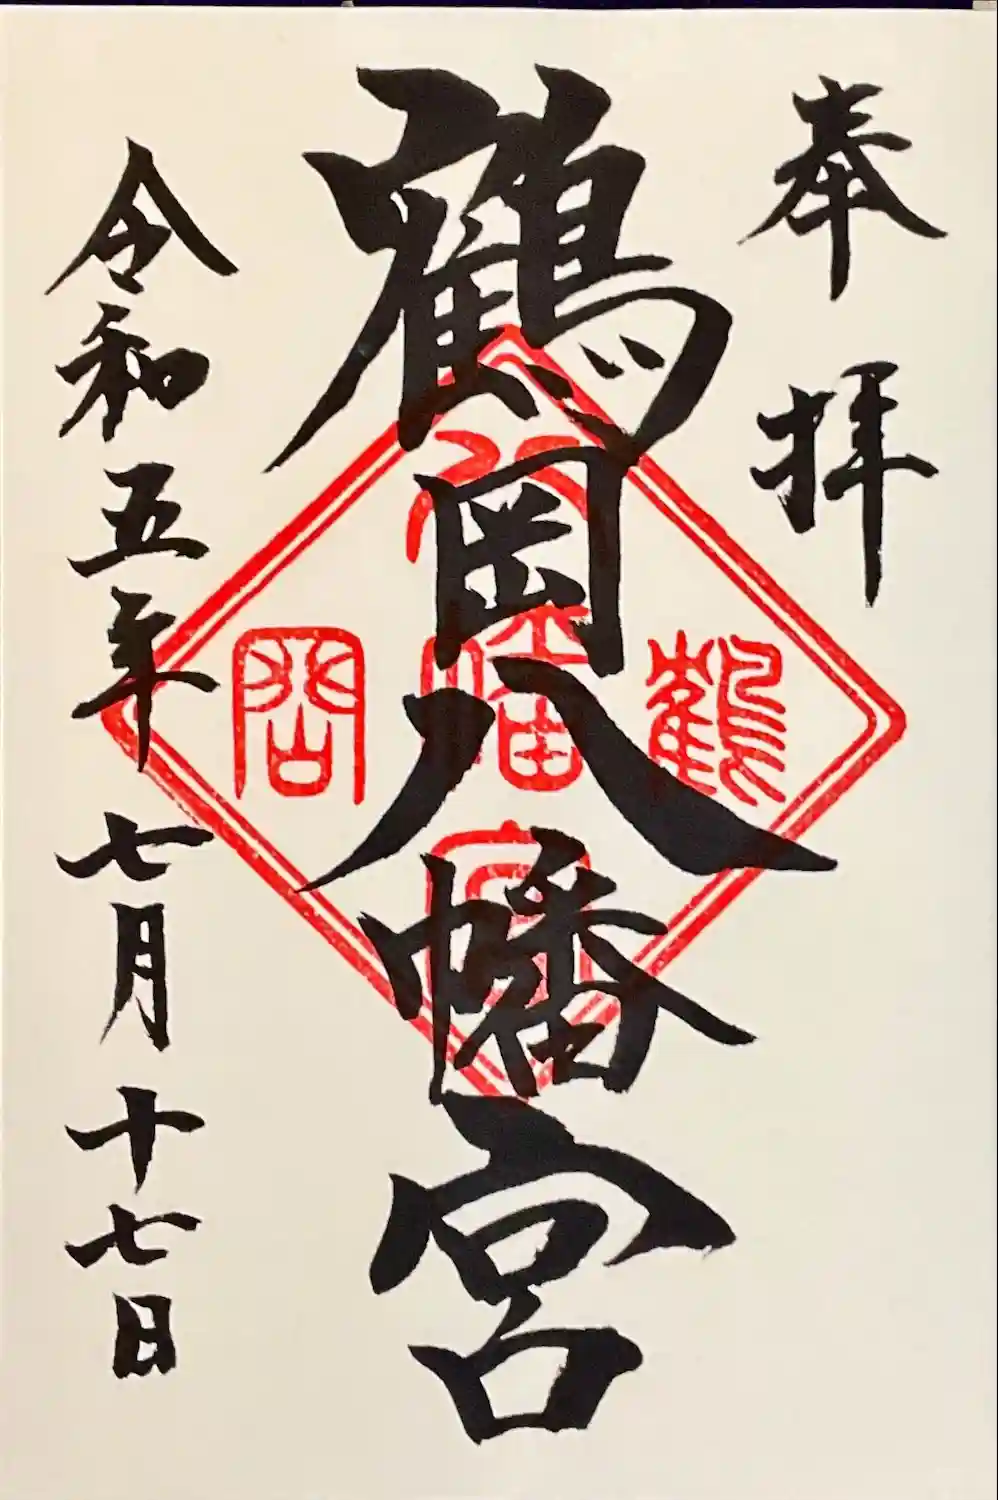 奉拝
鶴岡八幡宮
令和五年七月十七日
八
鶴幡岡
宮